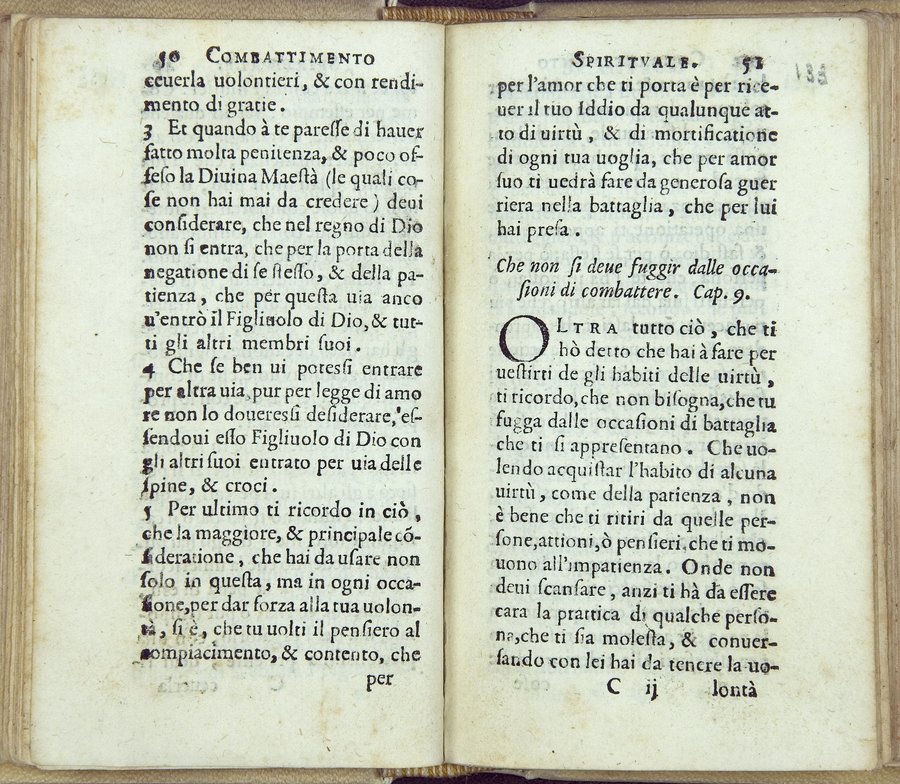 50 COMBATTIMENTO
ceuerla uolontieri, & con rendi-
mento di gratie.
3 Et quando à te pareſſe di hauer
fatto molta penitenza, & poco of-
feſo la Diuina Maeſtà (le quali co-
ſe non hai mai da credere) deui
conſiderare, che nel regno di Dio
non ſi entra, che per la porta della
negatione di ſe ſteſſo, & della pa-
tienza, che per queſta uia anco
u'entrò il Figliuolo di Dio, & tut-
ti gli altri membri ſuoi.
4 Che ſe ben ui poteſſi entrare
per altra uia, pur per legge di amo
re non lo doureſſi deſiderare, eſ-
ſendoui eſſo Figliuolo di Dio con
gli altri ſuoi entrato per uia delle
ſpine, & croci.
5 Per ultimo ti ricordo in ciò,
che la maggiore, & principale cõ-
ſideratione, che hai da uſare non
ſolo in queſta, ma in ogni occa-
ſione, per dar forza alla tua uolon-
tà, ſi è, che tu uolti il penſiero al
compiacimento, & contento, che
per
SPIRITVALE. 51
per l'amor che ti porta è per rice-
uer il tuo Iddio da qualunque at-
to di uirtù, & di mortificatione
di ogni tua uoglia, che per amor
ſuo ti uedrà fare da generoſa guer
riera nella battaglia, che per lui
hai preſa.
Che non ſi deue fuggir dalle occa-
ſioni di combattere. Cap. 9.
OLTRA tutto ciò, che ti
hò detto che hai à fare per
ueſtirti de gli habiti delle uirtù,
ti ricordo, che non biſogna, che tu
fugga dalle occaſioni di battaglia
che ti ſi appreſentano. Che uo-
lendo acquiſtar l'habito di alcuna
uirtù, come della patienza, non
è bene che ti ritiri da quelle per-
ſone, attioni, ò penſieri, che ti mo-
uono all'impatienza. Onde non
deui ſcanſare, anzi ti hà da eſſere
cara la prattica di qualche perſo-
na, che ti ſia moleſta, & conuer-
ſando con lei hai da tenere la uo-
C ij lontà